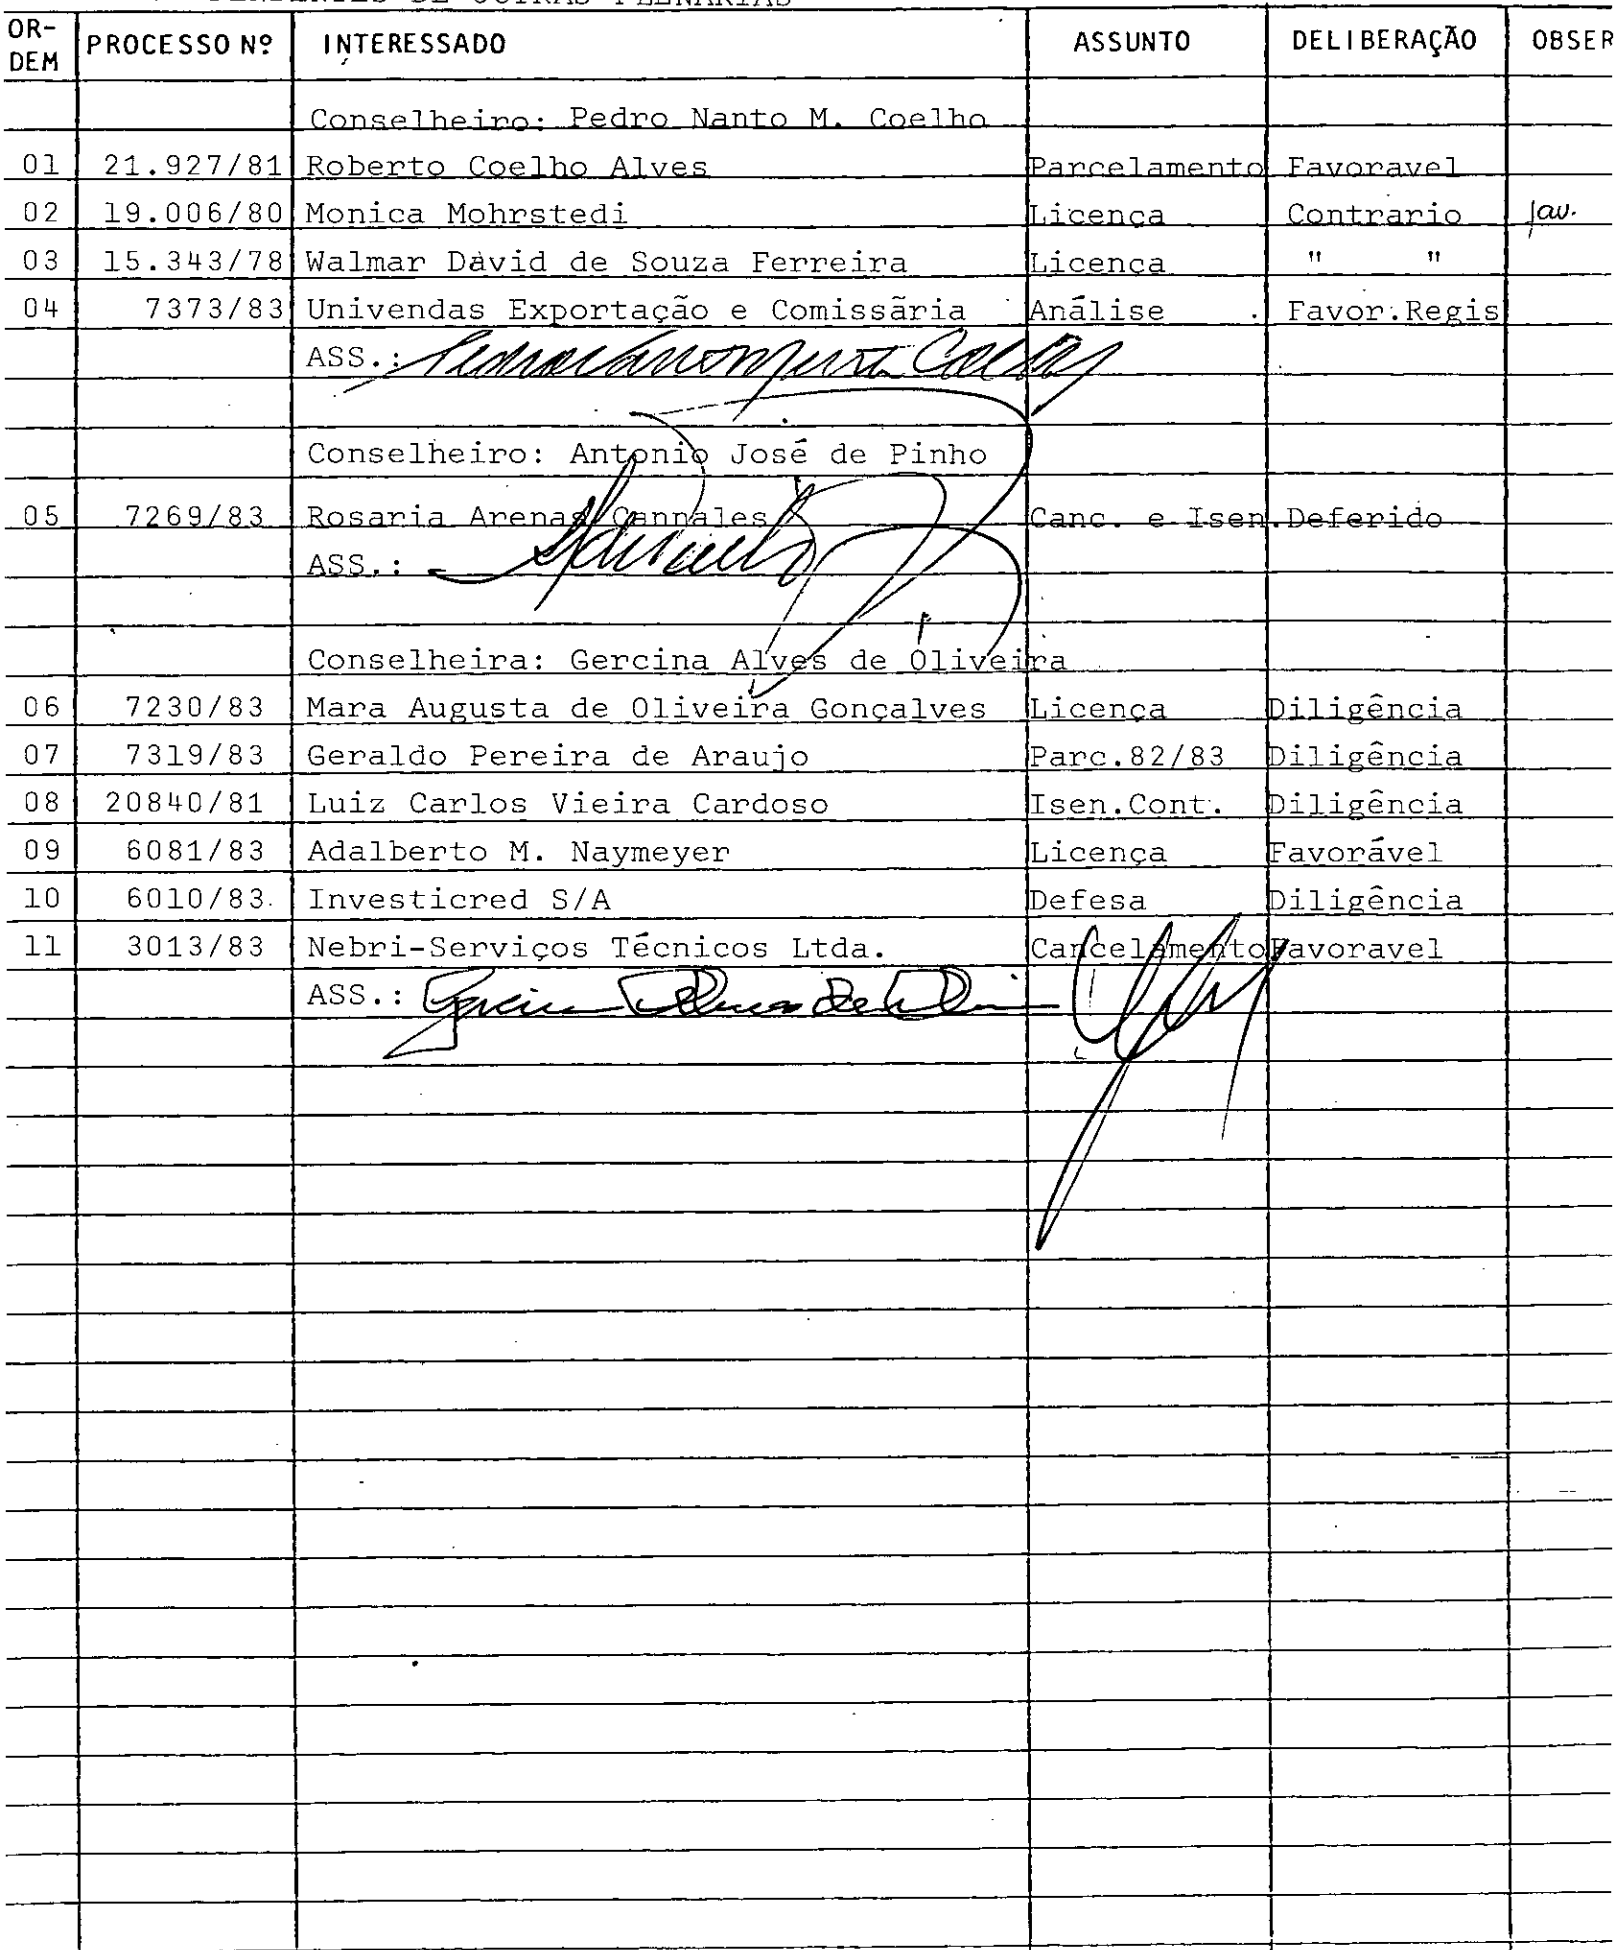 PENDENTES DE OUTRAS PLENARIAS
OR-DEM PROCESSO Nº INTERESSADO ASSUNTO DELIBERAÇÃO OBSER
Conselheiro: Pedro Nanto M. Coelho
01 21.927/81 Roberto Coelho Alves Parcelamento Favoravel
02 19.006/80 Monica Mohrstedi Licença Contrario fav.
03 15.343/78 Walmar David de Souza Ferreira Licença " "
04 7373/83 Univendas Exportação e Comissãria Análise Favor.Regis
ASS.:
Conselheiro: Antonio José de Pinho
05 7269/83 Rosaria Arenas Cannales Canc. e Isen.Deferido
ASS.:
Conselheira: Gercina Alves de Oliveira
06 7230/83 Mara Augusta de Oliveira Gonçalves Licença Diligência
07 7319/83 Geraldo Pereira de Araujo Parc.82/83 Diligência
08 20840/81 Luiz Carlos Vieira Cardoso Isen.Cont. Diligência
09 6081/83 Adalberto M. Naymeyer Licença Favorável
10 6010/83 Investicred S/A Defesa Diligência
11 3013/83 Nebri-Serviços Técnicos Ltda. Cancelamento Favoravel
ASS.: